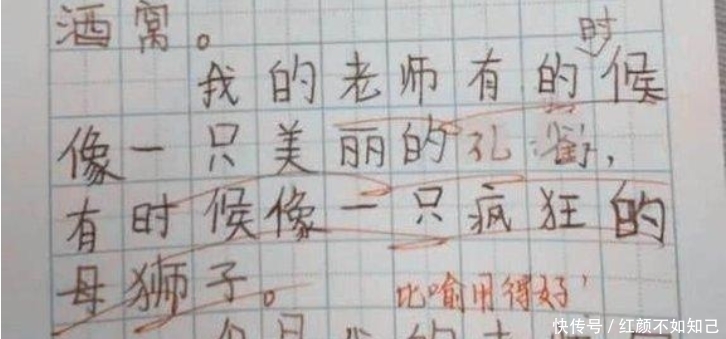 酒窝。
时
我的老师有的候
像一只美丽的孔雀，
有时候像一只疯狂的
母狮子。
比喻用得好！
的老师
快传号／红颜不如知己